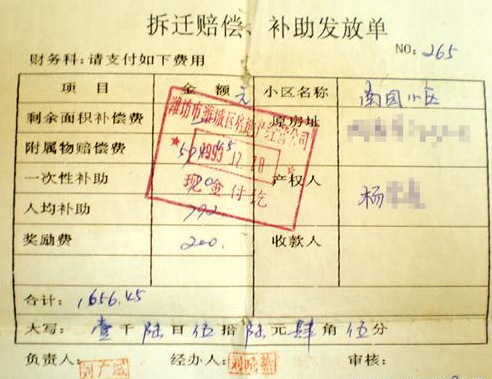 拆迁赔偿、补助发放单
NO: 265
财务科：请支付如下费用
项 目 金 额 元 小区名称 南园小区
剩余面积补偿费 原房址
附属物赔偿费
一次性补助 产权人 杨
人均补助 792
奖励费 200. 收款人
合计： 1656.45
大写： 壹 千 陆 百 伍 拾 陆 元 肆 角 伍 分
负责人： 经办人： 审核：
潍坊市潍城区房地产经营公司
1993.12.20
现金付讫